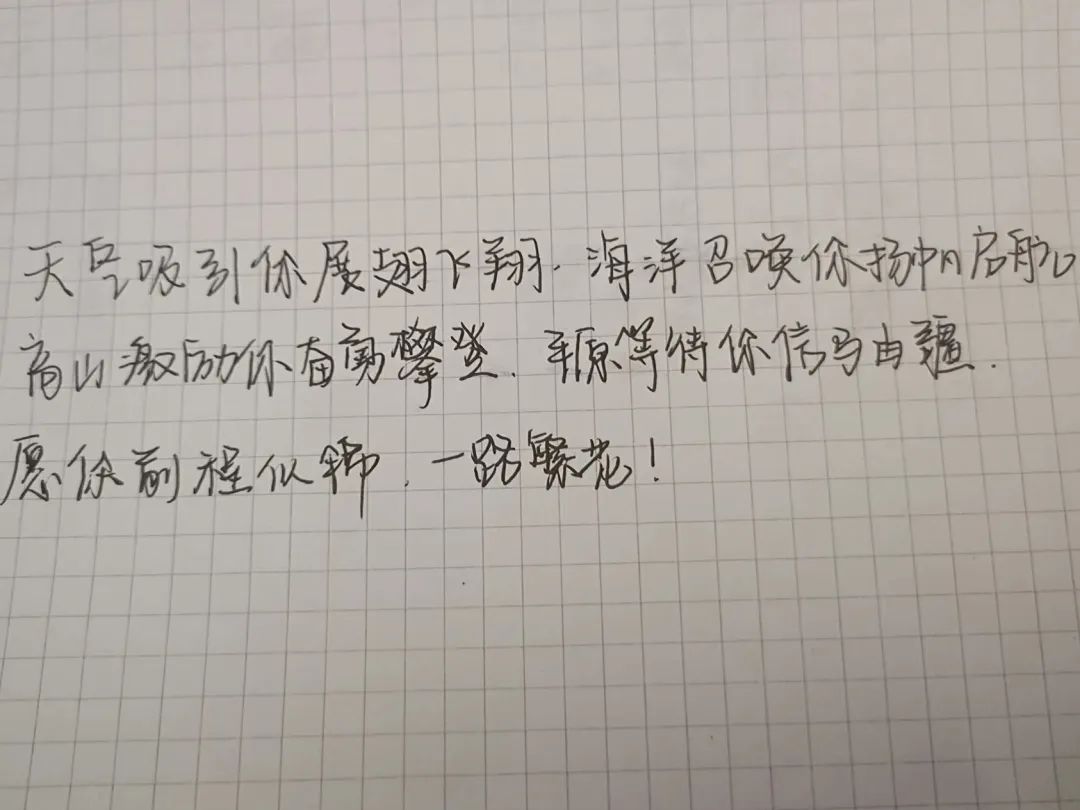 天空吸引你展翅飞翔.海洋召唤你扬帆启航
高山激励你奋勇攀登.平原等待你信马由疆.
愿你前程似锦.一路繁花!